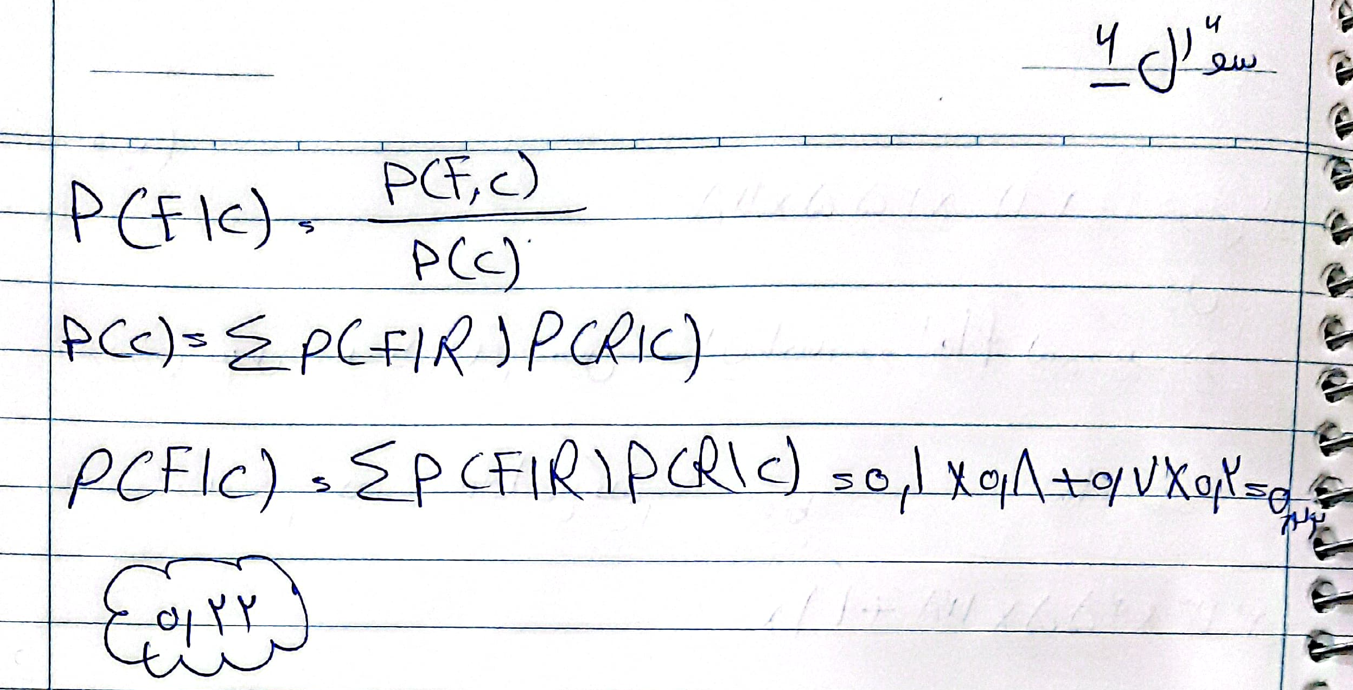 سؤال ۶
P(F|C) = P(F,C) / P(C)
P(C) = Σ P(F|R) P(R|C)
P(F|C) = Σ P(F|R) P(R|C) = ۰,۱ × ۰,۸ + ۰,۷ × ۰,۲ = ۰,۲۲
۰,۲۲